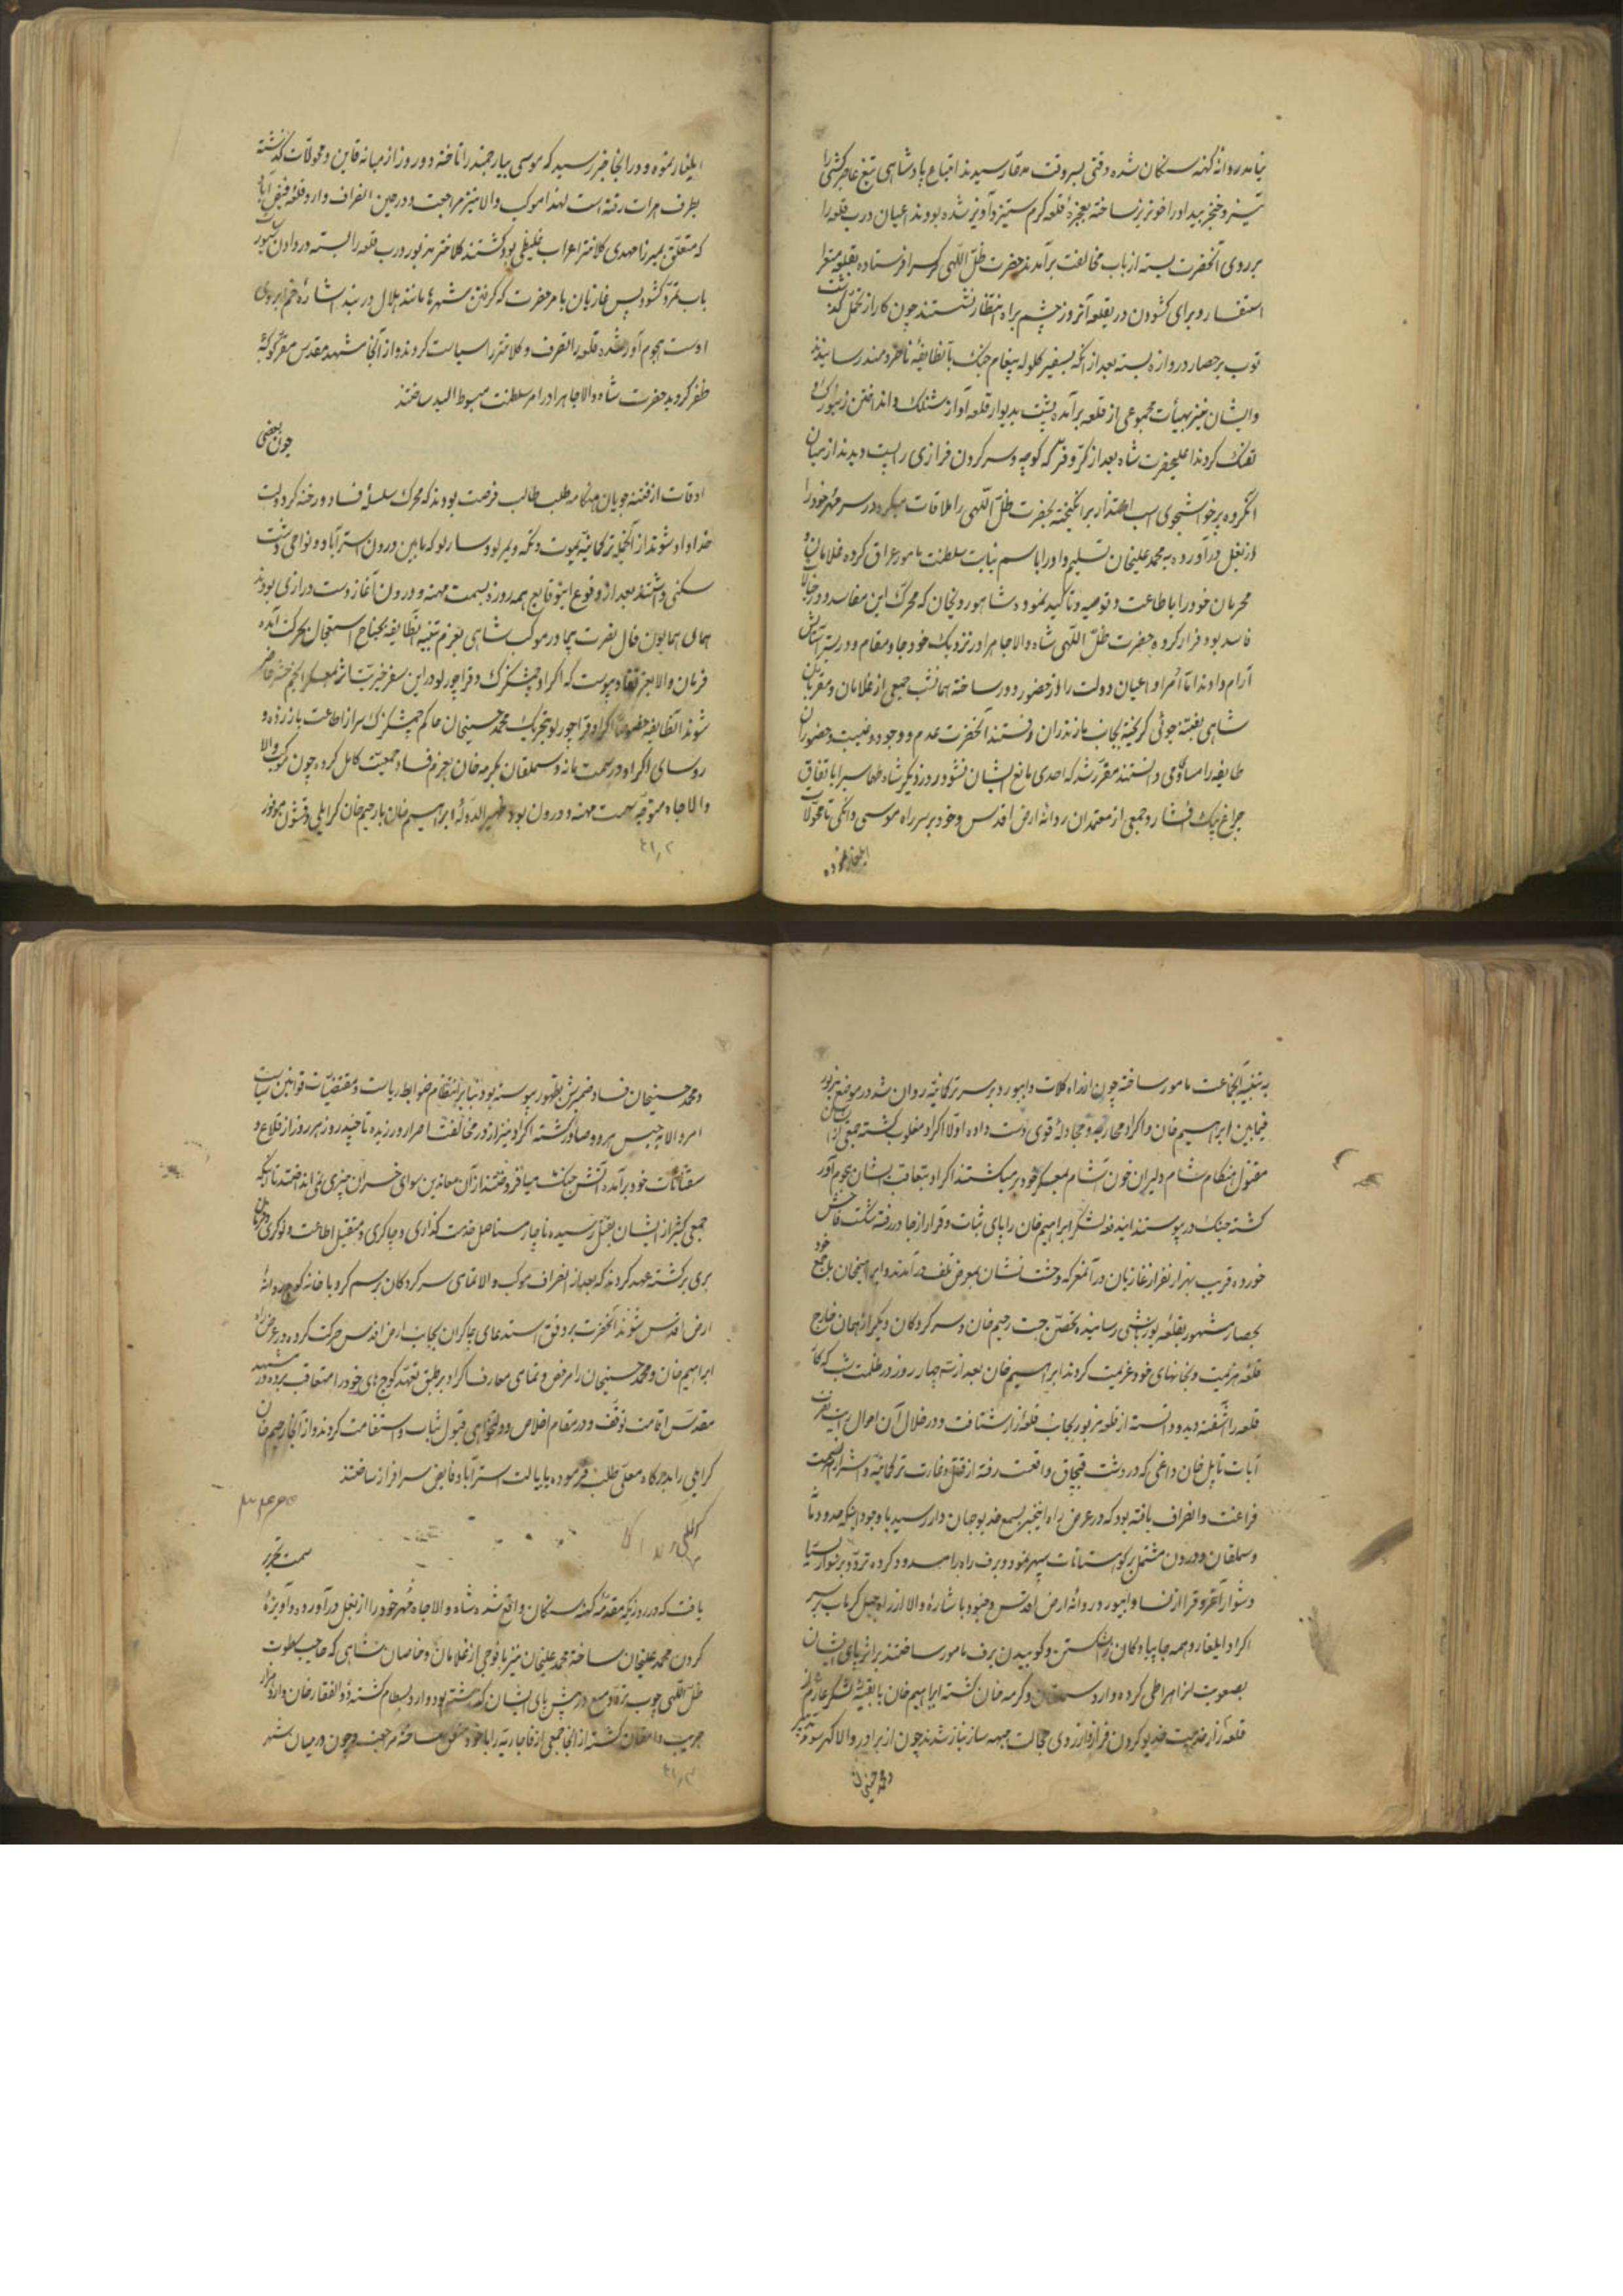 نیامد روانهٔ کهنه سنکان شده وقتی بسروقت مقار رسیدند اتباع پادشاهی تیغ عاجزکشی را
تیز و خنجر بیداد را خونریز ساخته بعجزهٔ قلعه کرم ستیز و آویز شده بودند اعیان درب قلعه را
بر روی آنحضرت بسته از باب مخالفت برآمدند حضرت ظلّ اللّهی کس فرستاده بقلعه
استفسار و برای کشودن در بقلعه آنروز چشم براه انتظار نشستند چون کار از تحمّل گذشت
توپ بر حصار دروازه بسته بعد از آنکه بسفیر کلوله پیغام جنک بآنطایفه رسانیدند
و ایشان نیز بهیأت مجموعی از قلعه برآمده پشت بدیوار قلعه آواز شنلک و انداختن زنبورک و
تفنک کردند اعلیحضرت شاه بعد از کرّ و فرّ که کوچه و سر کردن فرازی را پست دیدند از میان
آنگروه برخواسته اسب برانگیخته بحضرت ظلّ اللّهی را ملاقات سر مهر خود را
از بغل درآورده به محمد علیخان تسلیم و او را باسم نیابت سلطنت مامور عراق کرده غلامان و
محرمان خود را باطاعت و توصیه و تاکید نمود و شاهوردیخان که محرک این مفاسد و
فاسد بود فرار کرده حضرت ظلّ اللّهی شاه والاجاه را در نزدیک خود جا و مقام و در بستر آسایش
آرام دادند اما امرا و اعیان دولت را از حضور دور ساخته همانشب جمعی از غلامان و مقربان
شاهی بفتنه جوئی کریخته بجانب مازندران رفتند آنحضرت عدم و وجود و غیبت و حضور آن
طایفه را مساوی دانستند مقرر شد که احدی مانع ایشان نشود روز دیگر شاه طهماسب را باتفاق
چراغ بیک افشار و جمعی از معتمدان روانهٔ ارض اقدس و خود بر سر راه موسی دانکی تا محولات
ایلغار نموده
ایلغار نموده و در آنجا خبر رسید که موسی بیارجمند را تاخته و دو روز از میانه قاین و محولات گذشته
بطرف هرات رفته است لهذا موکب والا نیز مراجعت و در حین انصراف وارد قلعهٔ فیض آباد
که متعلق بمیرزا مهدی کلانتر اعراب بود گشتند کلانتر مزبور درب قلعه را بسته در دادن
باب تمرّد کشود پس غازیان بامر حضرت که گرفتن شهرها مانند هلال در بند اشارهٔ خم ابروی
اوست هجوم آور شده قلعه را تصرف و کلانتر را سیاست کردند و از آنجا مشهد مقدس مقرّ کوکبهٔ
ظفر گردید حضرت شاه والاجاه را در امر سلطنت مبسوط الید ساختند
چون بعضی
اوقات از فتنه جویان هنکامه طلب طالب فرصت بودند که محرک سلسلهٔ فساد و رخنه گر دولت
خداداد شوند از آنجمله ترکمانیهٔ یموت و تکه و یمرلو و سارلو که مابین درون استرآباد و نواحی دشت
سکنی داشتند بعد از وقوع اینوقایع همه روزه بسمت مهنه و درون آغاز دست درازی بودند
همای همایون فال نصرت پیما در موکب شاهی بعزم تنبیه آنطایفه بجناح استعجال بحرکت آمده
فرمان والا بعز نفاذ پیوست که اکراد چمشکزک و قراچورلو در این سفر خیریت اثر بمعسکر انجم حشر حاضر
شوند آنطایفه خصوصاً اکراد قراچورلو بتحریک محمد حسینخان حاکم چمشکزک سر از اطاعت باز زده و
روسای اکراد در سمت مانه و سملقان بکرمه خان بعزم فساد جمعیت کامل کرده چون موکب والا
والاجاه متوجه سمت مهنه و درون بود ظهیر الدوله ابراهیم خان با رحیم خان کرایلی و قشون مزبور
۴۱٫۲
به تنبیه آنجماعت مامور ساخته چون از راه کلات و ابیورد بر سر ترکمانیه روان شد در موضع مزبور
فیمابین ابراهیم خان و اکراد محاربه و مجادلهٔ قوی دست داده اولا اکراد مغلوب گشته جمعی از ایشان
مقتول هنکام شام دلیران خون آشام بمعسکر خود بر میکشتند اکراد بتعاقب ایشان هجوم آور
گشته جنک در پیوستند ایندفعه لشکر ابراهیم خان را پای ثبات و قرار از جا در رفته شکست فاحش
خورده قریب بهزار نفر از غازیان در آنمعرکه وحشت نشان بمعرض تلف درآمدند و ابراهیمخان با جمع خود
بحصار مشهور بقلعه یوزباشی رسانیده تحصّن جست رحیم خان و سرکردکان دیکر از همان خارج
قلعه هزیمت و بخانهای خود عزیمت کردند ابراهیم خان بعد از سه چهار روز در ظلمت شب که
قلعه را آشفته دیده دانسته از قلعه مزبور بجانب قلعه زار شتافت و در خلال آن احوال رایت نصرت
آیات تا بلخان داغی که در دشت قبچاق واقعست رفته از قتل و غارت ترکمانیه و اشرار آنسمت
فراغت و انصراف یافته بود که در عرض راه اینخبر بسمع خدیو جهان دار رسید با وجود اینکه حدود
و سملقان و درون مشتمل بر کوهستانات سپهر نمود و برف راه را مسدود کرده تردّد بر سوار
دشوار آنمرد قرا از نسا و ابیورد روانهٔ ارض اقدس و خود باشارهٔ والا از راه جبل کرماب بر سر
اکراد ایلغار و همه جا پیادکان را بشکستن و کوبیدن برف مامور ساختند بر اثر پای ایشان
بصعوبت لزاهراطی کرده وارد سملقان و کرمه خان گشته ابراهیم خان با بقیه لشکر عازم از
قلعه زار خدمت خدیو کردون فراز و از روی خجالت جبهه ساز نیاز شدند چون از برادر والا کهر
و محمد حسینخان
و محمد حسینخان فساد ضمیرش بظهور پیوسته بود بنا بر انتظام ضوابط ریاست و مقتضیات قوانین سیاست
امر والا به حبس هر دو صادر گشته اکراد نیز از در مخالفت اصرار ورزیده تا چند روز هر روز از قلاع و
سقناقات خود برآمده آتش جنک میافروختند از آن معاندین سوای خسران چیزی نمی اندوختند تا آنکه
جمعی کثیر از ایشان بقتل رسیده ناچار مستاصل خدمت گذاری و چاکری و متقبل اطاعت و نوکری
بری برکشته عهد کردند که بعد از انصراف موکب والا تمامی سرکردکان برسم کرو با خانه کوچ روانهٔ
ارض اقدس شوند آنحضرت بر وفق استدعای چاکران بجانب ارض اقدس حرکت کرده در عرض راه
ابراهیم خان و محمد حسینخان را مرخص و تمامی معارف اکراد بر طبق تعهّد کوچهای خود را متعاقب برده در مشهد
مقدس اقامت توقف و در مقام اخلاص و دولتخواهی قبول ثبات و استقامت کردند و از آنجا رحیم خان
کرایلی را بدرکاه معلّی طلب فرموده بایالت استرآباد فایض سرافراز ساختند
سمت تحریر
یافت که در روزیکه مقدمهٔ کهنه سنکان واقع شد شاه والاجاه مُهر خود را از بغل درآورده و آویزهٔ
کردن محمد علیخان ساخته محمد علیخان نیز با فوجی از غلامان و خاصان شاهی که صاحب سطوت
ظلّ اللّهی چوب ترّه و منع در پیش پای ایشان نکذاشته بود وارد بسطام گشته ذوالفقار خان
و دامغان گشته از آنجا جمعی از قاجاریه را با خود متفق ساخته مراجعت و چون در میان
۴۱٫۳